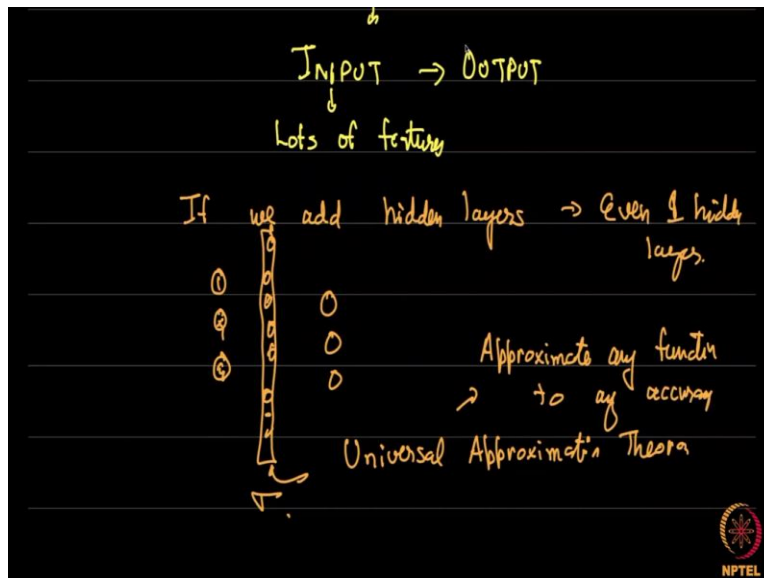 INPUT → OUTPUT
Lots of fetures
If we add hidden layers → Even 1 hidde
layer.
1
2
3
Approximate any functin
to ay accuray
Universal Approximatin Theora
σ
NPTEL